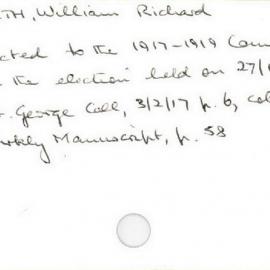 TH, William Richard
cted to the 1917-1919 Coun
the election held on 27/1
. George Call, 3/2/17 p. 6, col
rkly Manuscript, p. 58